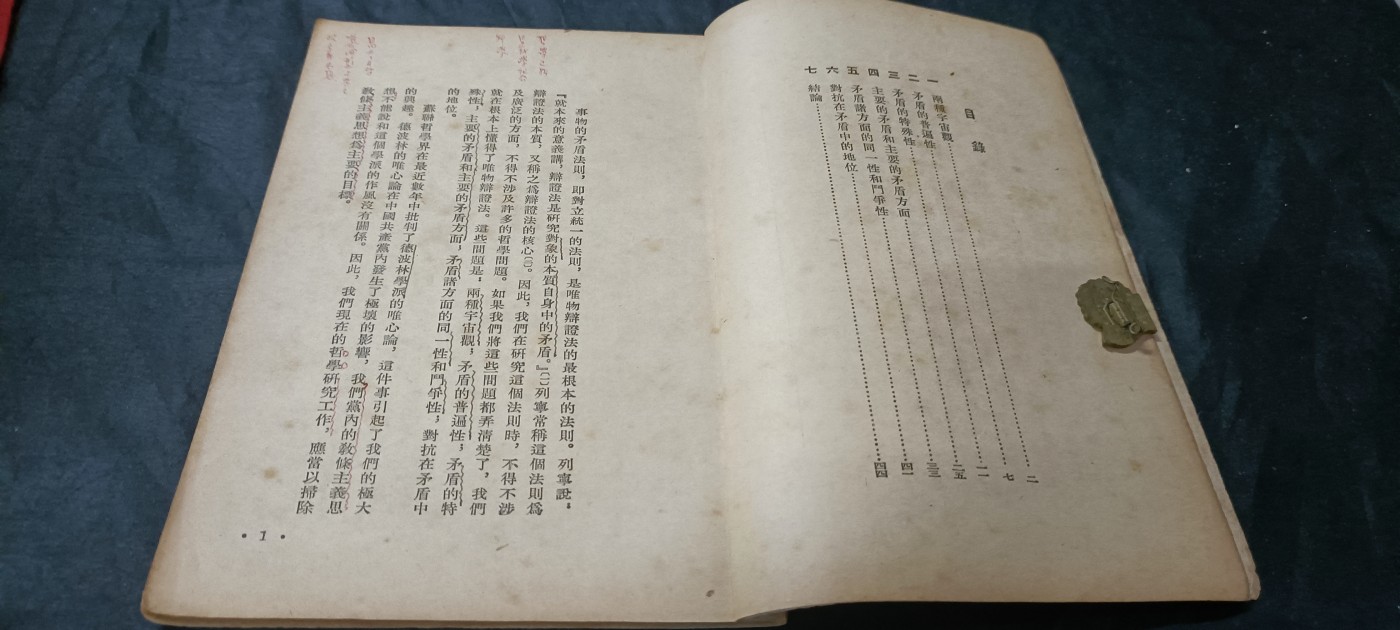 目錄
一 兩種宇宙觀……二
二 矛盾的普遍性……七
三 矛盾的特殊性……一一
四 主要的矛盾和主要的矛盾方面……二五
五 矛盾諸方面的同一性和鬥爭性……三三
六 對抗在矛盾中的地位……四一
七 結論……四四
事物的矛盾法則,即對立統一的法則,是唯物辯證法的最根本的法則。列寧說:
『就本來的意義講,辯證法是研究對象的本質自身中的矛盾。』〔一〕列寧常稱這個法則爲
辯證法的本質,又稱之爲辯證法的核心〔二〕。因此,我們在研究這個法則時,不得不涉
及廣泛的方面,不得不涉及許多的哲學問題。如果我們將這些問題都弄清楚了,我們
就在根本上懂得了唯物辯證法。這些問題是:兩種宇宙觀;矛盾的普遍性;矛盾的特
殊性;主要的矛盾和主要的矛盾方面;矛盾諸方面的同一性和鬥爭性;對抗在矛盾中
的地位。
蘇聯哲學界在最近數年中批判了德波林學派的唯心論,這件事引起了我們的極大
的興趣。德波林的唯心論在中國共產黨內發生了極壞的影響,我們黨內的教條主義思
想不能說和這個學派的作風沒有關係。因此,我們現在的哲學研究工作,應當以掃除
教條主義思想爲主要的目標。
• 1 •